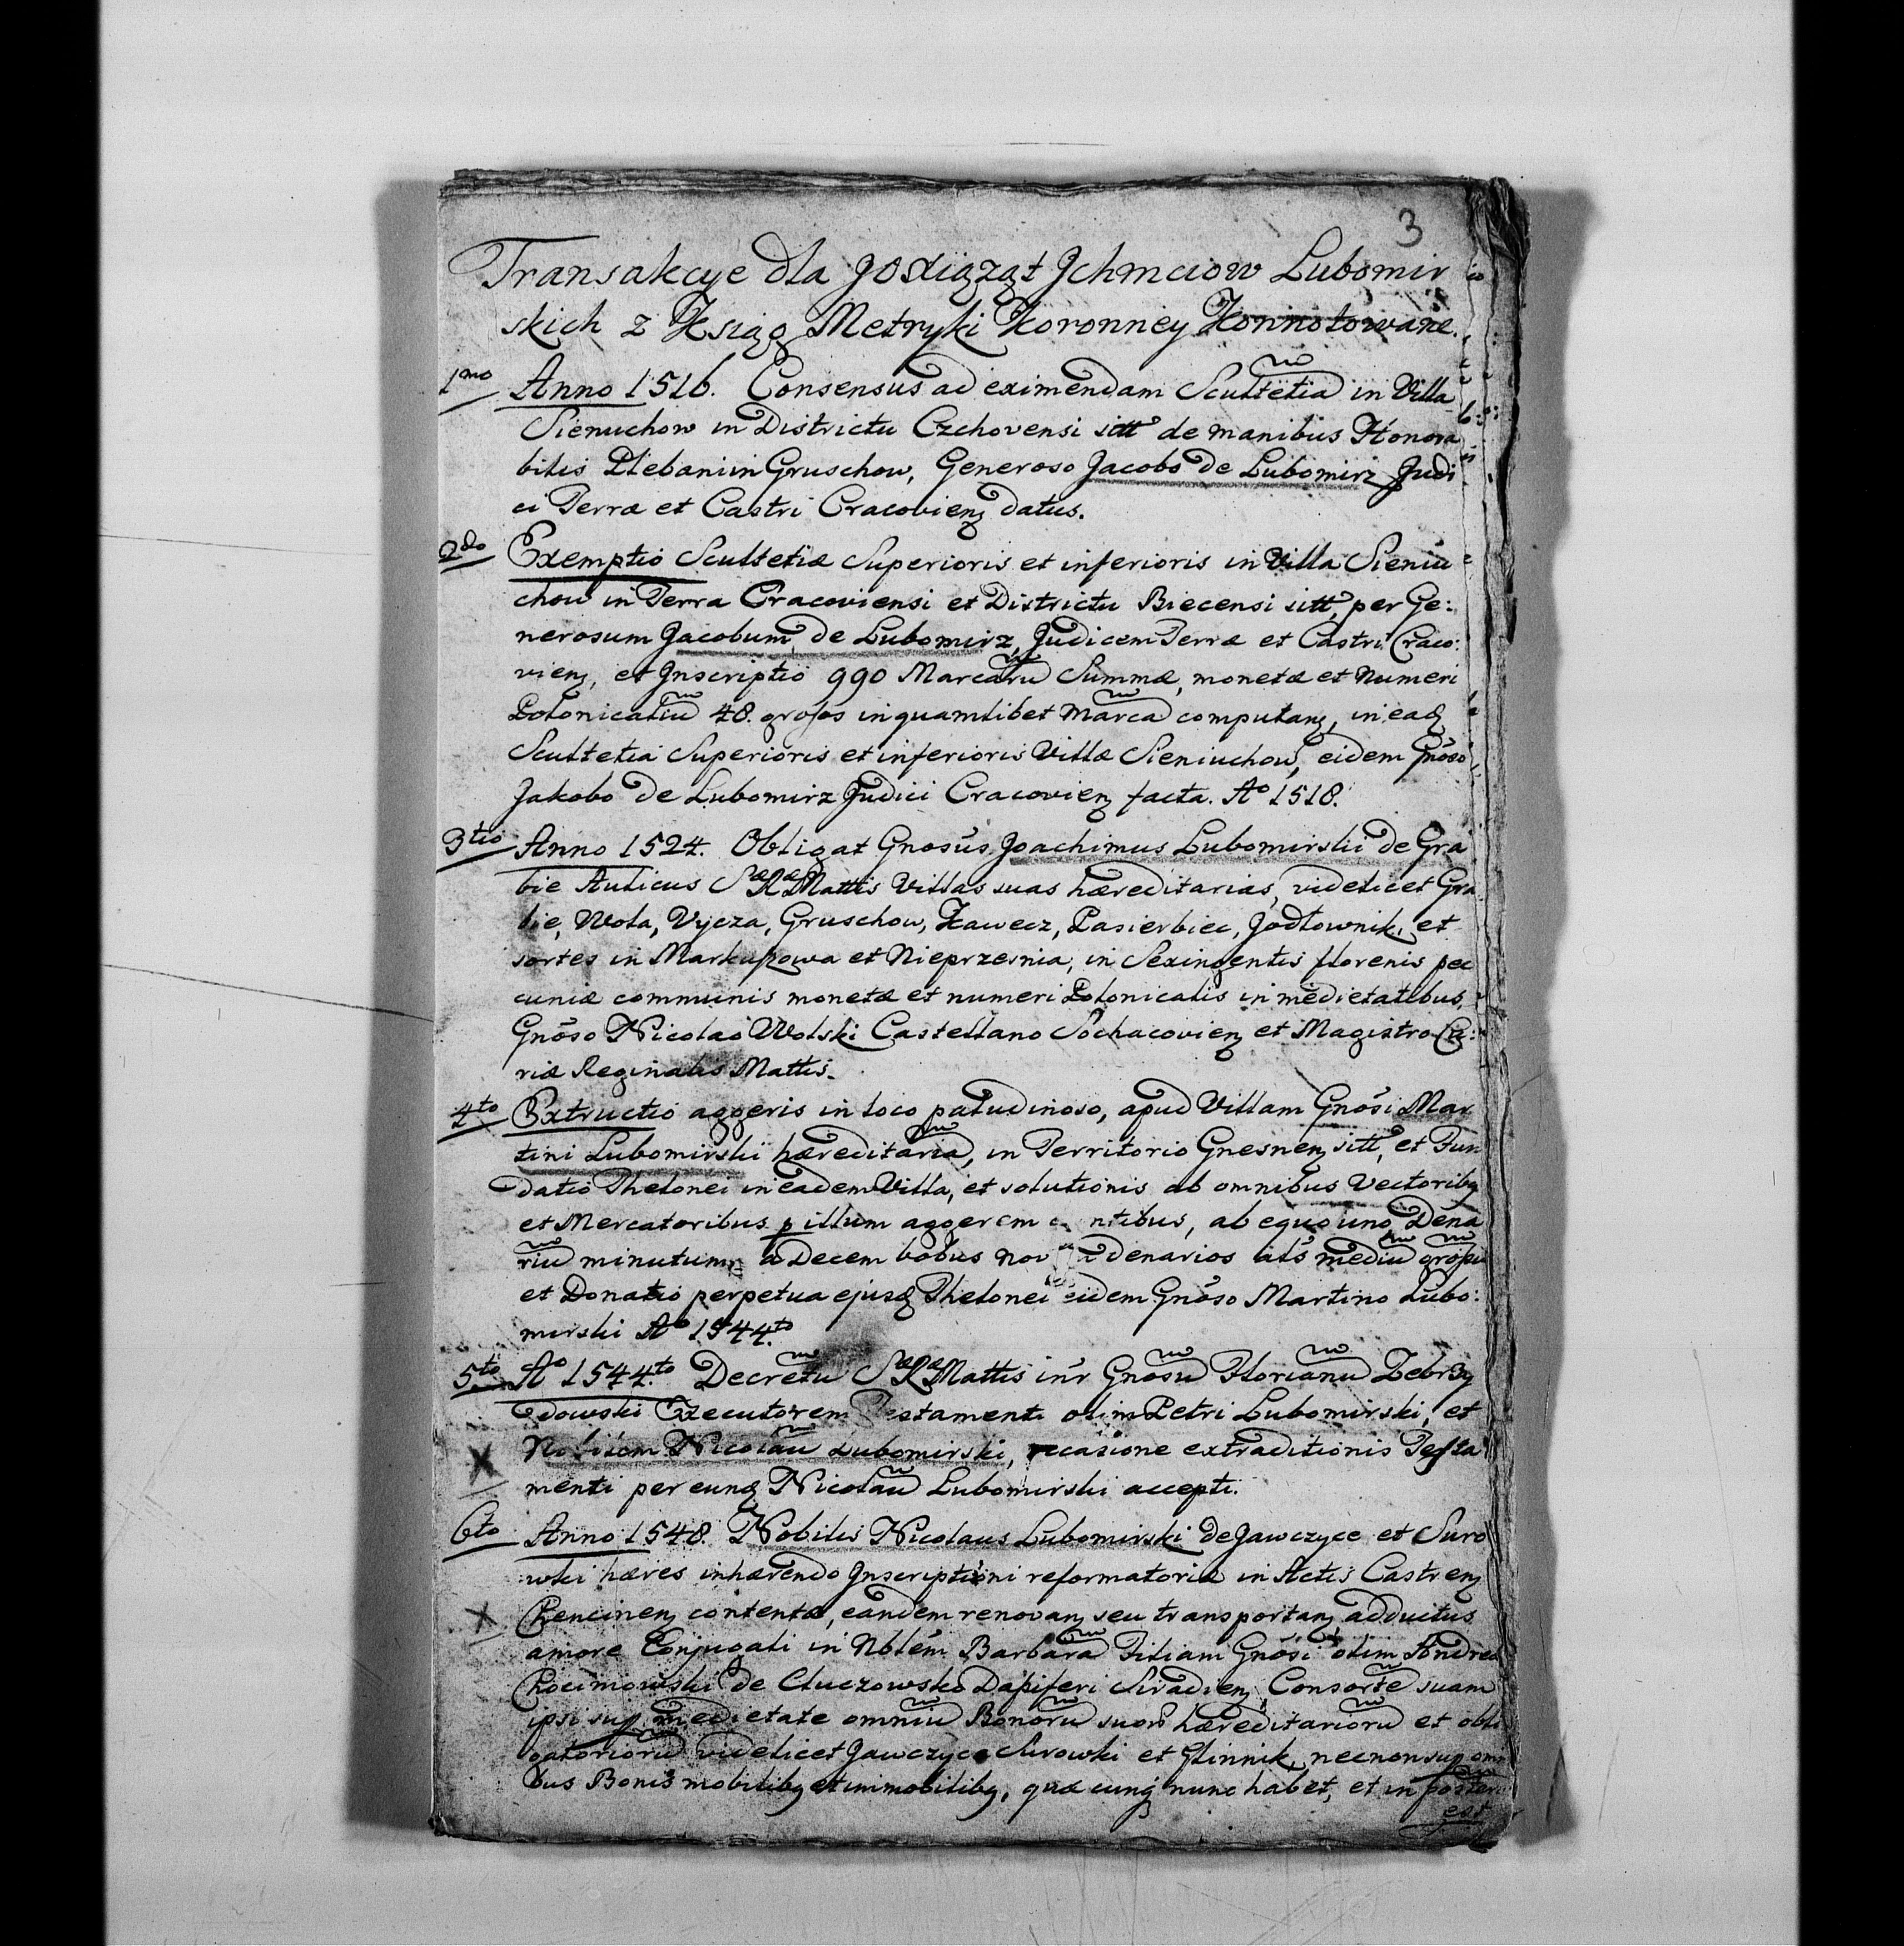 3
Transakcye dla JOXiążąt Jchmciow Lubomir
skich z Xsiąg Metryki Koronney Konnotowane.
1mo Anno 1516. Consensus ad eximendam Scultetia in Villa
Sienuchow in Districtu Czchovensi sitt de manibus Honora
bilis Plebani in Gruschow, Generoso Jacobo de Lubomirz Judi
ci Terræ et Castri Cracovien datus.
2do Exemptio Scultetiæ Superioris et inferioris in Villa Sieniu
chow in Terra Cracoviensi et Districtu Biecensi sitt, per Ge:
nerosum Jacobum de Lubomirz, Judicem Terræ et Castri Craco:
vien, et Jnscriptio 990 Marcaru Summæ, monetæ et Numeri
Polonicaliu 48. grosos in quamlibet Marca computan, in ead
Scultetia Superioris et inferioris Villæ Sieniuchow, eidem Gnōso
Jakobo de Lubomirz Judici Cracovien facta. Ao 1518.
3tio Anno 1524. Obligat Gnosūs Joachimus Lubomirski de Gra
bie Aulicus SæRæMattis Villas suas hæreditarias, videlicet Gra
bie, Wola, Vycza, Gruschow, Kawecz, Pasierbiec, Jodłownik, et
sortes in Markuszowa et Nieprzesnia, in Sexingentis florenis pec
cuniæ communis monetæ et numeri Polonicalis in medietatibus
Gnōso Nicolao Wolski Castellano Sochacovien et Magistro Cu:
riæ Reginalis Mattis.
4to Extructio aggeris in loco paludinoso, apud Villam Gnōsi Mar
tini Lubomirski hæreditaria, in Territorio Gnesnen sitt, et Fun
datio Thelonei in eadem Villa, et solutionis ab omnibus Vectoribq
et Mercatoribus p illum aggerem ntibus, ab equo uno Dena
riu minutum, a Decem bobus nov denarios als mediu grosu
et Donatio perpetua ejusq Thelonei eidem Gnōso Martino Lubo:
mirski Ao 1544.to
5to Ao 1544.to Decretu SæRæMattis inr Gnosu Florianu Zebrzy
dowski Exzecutorem Testamenti olim Petri Lubomirski, et
Nobilem Nicolau Lubomirski, occasione extraditionis Testa
menti per eunq Nicolau Lubomirski accepti.
6to Anno 1548. Nobilis Nicolaus Lubomirski de Jawczyce et Suro
wki hæres inhærendo Jnscriptioni reformatoriæ in Actis Castren
Chencinen contentæ, eandem renovan seu transportan adductus
amore Conjugali in Nblēm Barbara Filiam Gnōsi olim Andreæ
Chocimowski de Cluczowsko Dapiferi Siradien, Consorte suam
ipsi sup medietate omniu Bonoru suor hæreditarioru et obli
gatorioru videlicet Jawczyce Surowki et Glinnik, necnon sup omi
bus Bonis mobilibq et immobilibq, quæ cunq nunc habet, et in poster
est